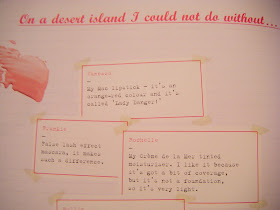 On a desert island I could not do without...
Contact
—
My Mac lipstick - it's an
orangered colour and it's
called 'Lady Danger!'
—
False lash effect
mascara, it makes
such a difference.
Rochelle
—
My Crème de la Mer tinted
moisturiser. I like it because
it's got a bit of coverage,
but it's not a foundation,
so it's very light.